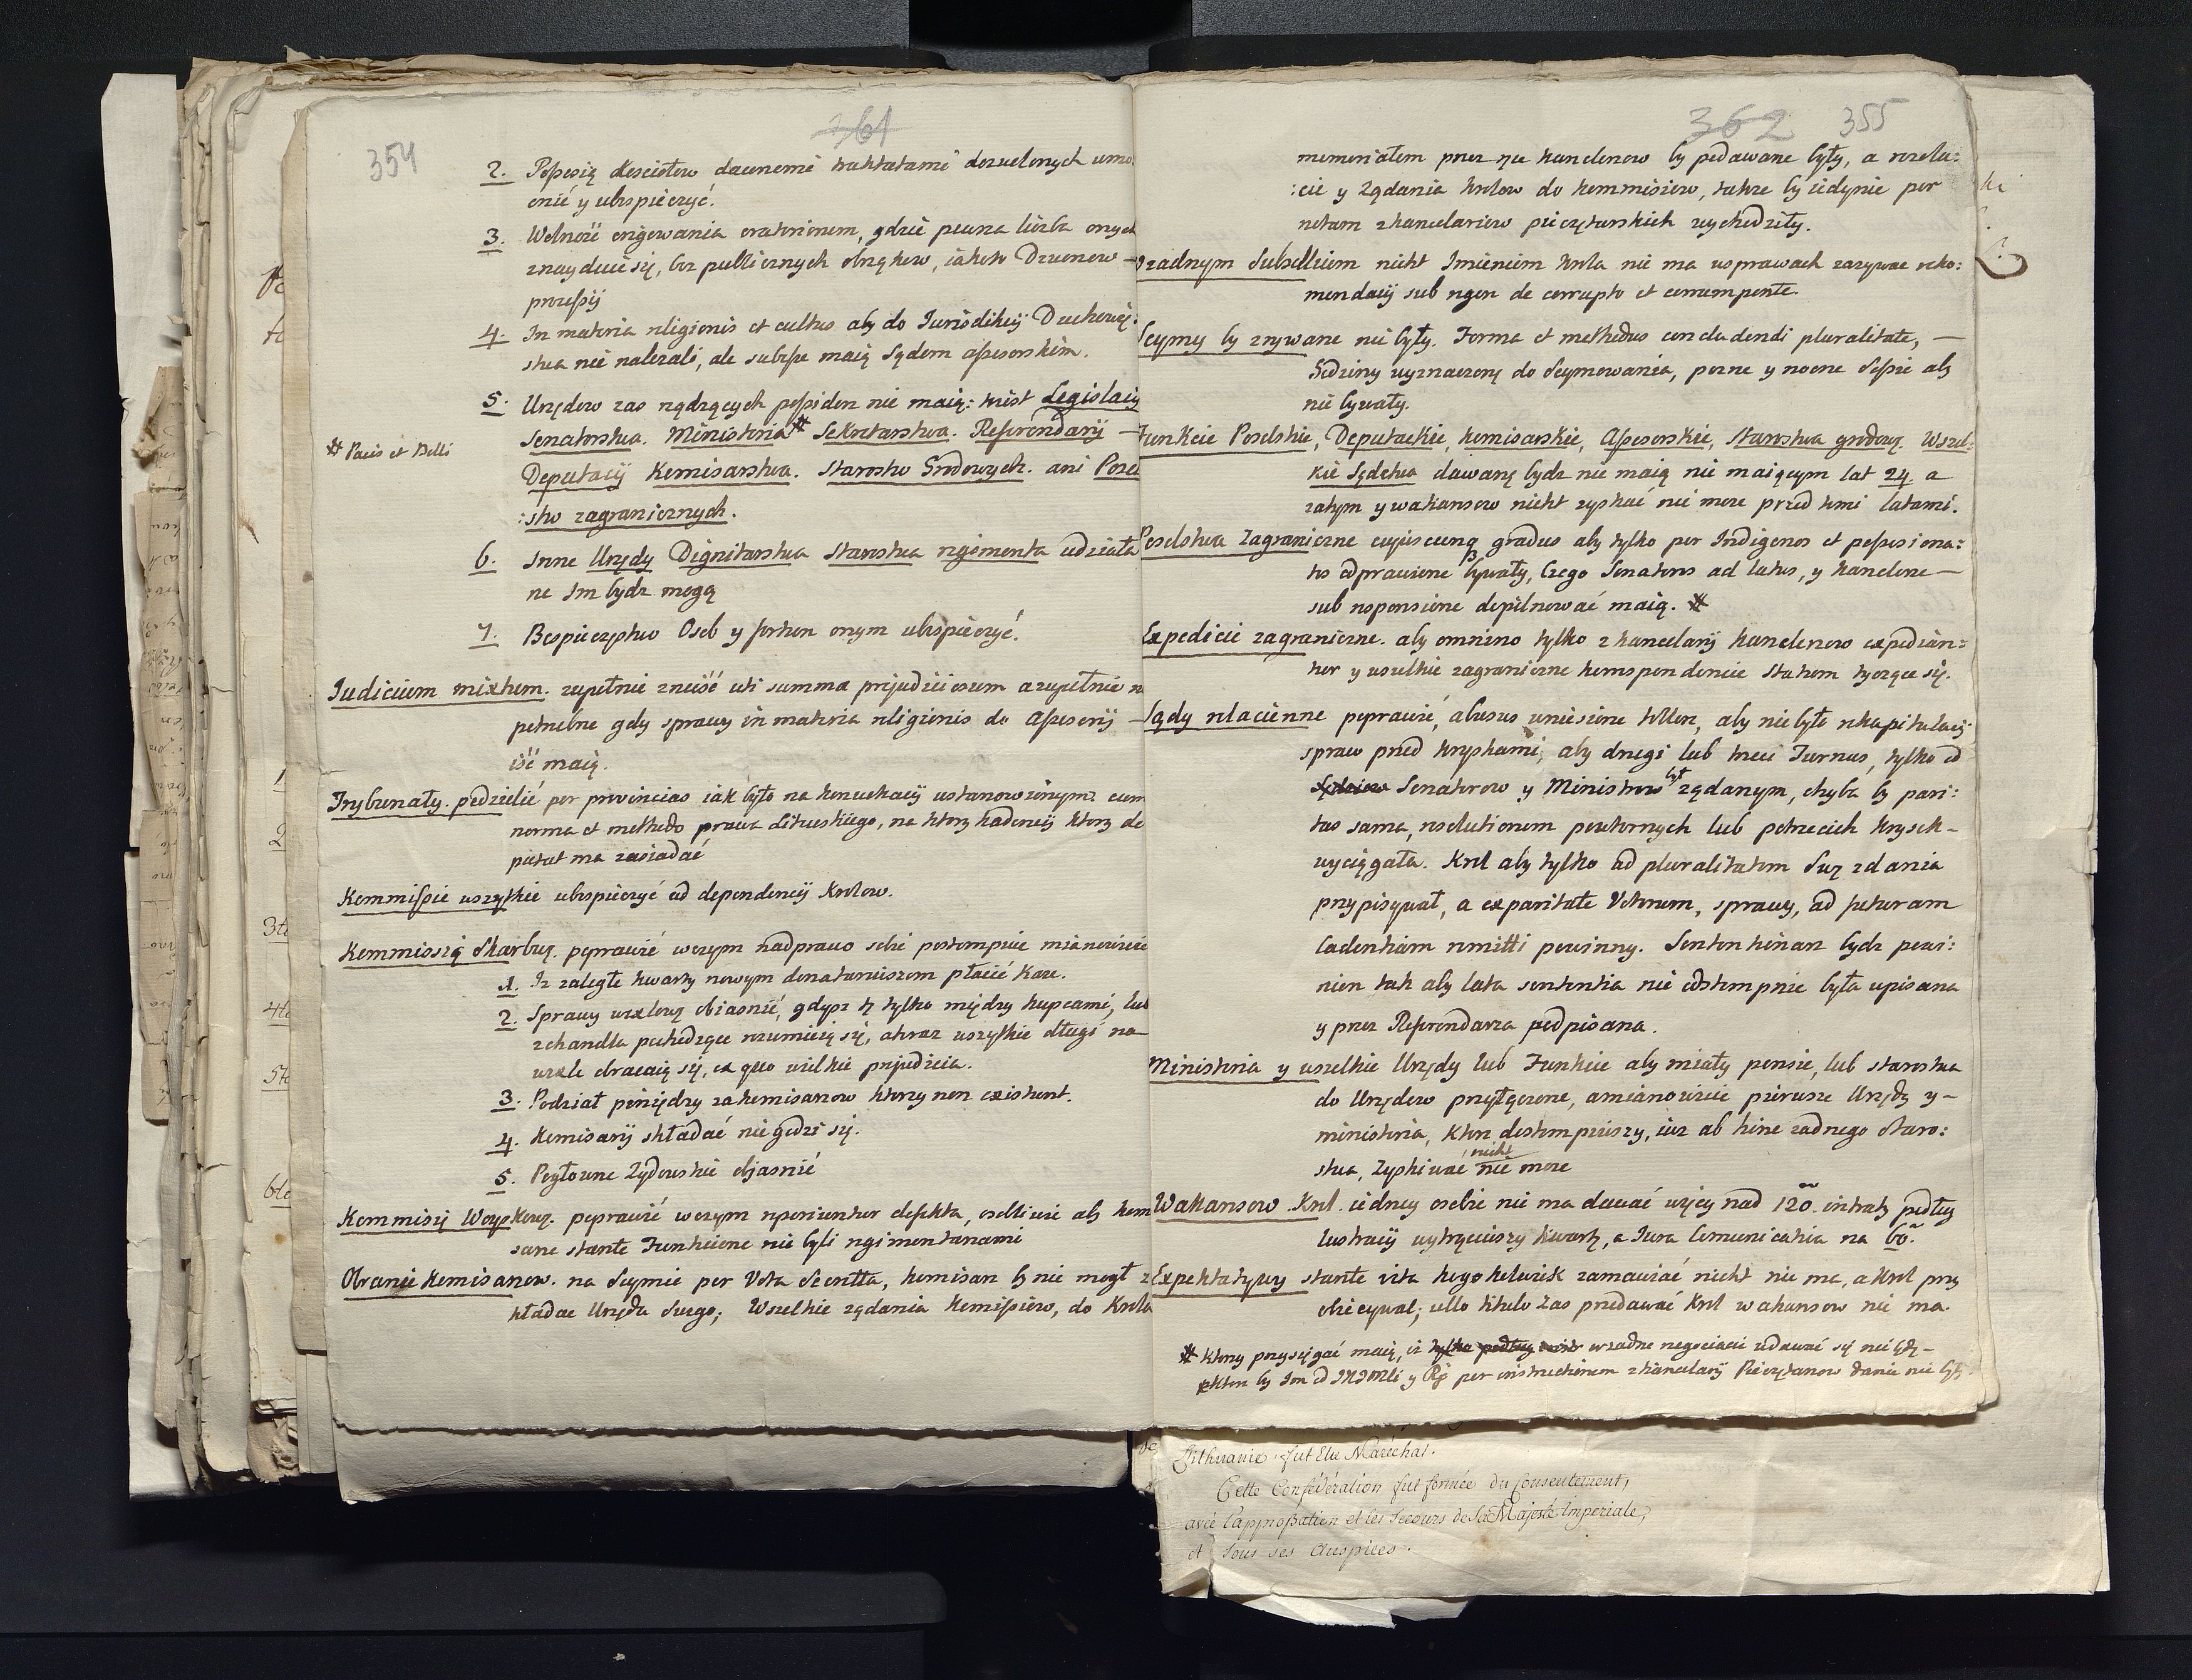 354
361
2. Possesią Kosciołow dawnemi traktatami dozwolonych umo
cnić y ubespieczyć.
3. Wolność erigowania oratorionem, gdzie pewna liczba onych
znayduie się, bez publicznych obrządkow, iakoto Dzwonow —
processij
4. In materia religionis et cultus aby do Iurisdikcij Duchowień:
stwa nie nalezali, ale subesse maią Sądom assesorskim.
5. Urzędow zas rządzących possiden nie maią: twist Legislacij
Senatorstwa. Ministeria # Sekretarstwa. Referendarij —
# Pacis et Belli
Deputacij Komisarstwa. Starostw Grodowych. ani Posel
:stw zagranicznych.
6. Inne Urzędy Dignitarstwa Starostwa regimenta udziela
ne Im bydz mogą
7. Bespieczęstwo Osob y forton onym ubespieczyć.
Iudicium mixtum. zupełnie znieść uti summa prejudiciosum a zupełnie n
potrebne gdy sprawy in materia religionis do Assesorij —
iść maią.
Trybunały. podzielić per provincias iak było na konwokacij ustanowionym: cum
norma et methedo prawa Litewskiego, na ktorą kadencij ktory de
putat ma zasiadać
Kommissie wszystkie ubespieczyć od dependencij Krolow.
Kommissią Skarbwą. poprawić w czym nadprawo sobie postempuie mianowicie
1. Iz zaległe kwarty nowym donatariuszom płacić Kaze.
2. Sprawy wexlowe obiasnić, gdysz tę tylko między kupcami, lub
z handlu pochodzące rozumieią się, a teraz wszystkie długi na
wexle obracaią się, ex quo wielkie prejudicia.
3. Podział pieniędzy za komisarzow ktorzy non existunt.
4. Komisarij składać nie godzi się.
5. Pogłowne Zydowskie objasnić
Kommisij Woyskowey. poprawić w czym reperientur defekta, osobliwie aby kom
sarze stante Funkcione nie byli regimentarzami
Obranie Komisarzow. na Seymie per Vota Secretta, komisarz by nie mogł z
kładac Urzędu Swego; Wszelkie ządania Komissiow, do Krola
362 355
memoriałem przez ręce kanclerzow by podawane były, a rezolu:
:cie y Ządania Krolow do kommisiow, takze by iedynie per
notam z kancelariow pieczętarskich wychodziły.
W zadnym Subsellium nicht Imieniem Krola nie ma w sprawach zazywac reko:
mendacij sub regen de corrupto et corrumpente.
Seymy by zrywane nie były. Forma et methedus concludendi pluralitate, —
Godziny wyznaczonę do Seymowania, pozne y nocne Sessie aby
nie bywały.
Funkcie Poselskie, Deputackie, komisarskie, Assesorskie, Starostwa grodowę. Wszel:
kie Sędstwa dawanę bydz nie maią nie maiącym lat 24. a
zatym y wakansow nicht zyskać nie moze przed temi latami.
Poselstwa Zagraniczne cujuscunq gradus aby tylko per Indigenos et possesiona:
tos odprawione bywały, Czego Senatores ad latus, y kanclerze —
sub responsione dopilnować maią. #
Expedicie zagraniczne. aby omnino tylko z kancelarij kanclerzow expedian:
tur y wszelkie zagraniczne korespondencie Statum tyczące się.
Sądy relacienne poprawić, abusus wniesione tollen, aby nie było rekapitulacij
spraw przed kryskami, aby drugi lub treci Turnus, tylko od
Senatorow y Ministrow był ządanym, chyba by pari:
tas sama, resolutionem powtornych lub potrzecich krysek —
wyciągała. Krol aby tylko ad pluralitatem Swę zdania
przypisywał, a exparitate Votorum, sprawy, ad futuram
Cadentiam remitti powinny. Sentencionarz bydz powi:
nien tak aby lata sententia nie odstempnie była wpisana
y przez Referendarza podpisana.
Ministeria y wszelkie Urzędy lub Funkcie aby miały pensie, lub starostwa
do Urzędow przyłączone, a mianowicie pierwsze Urzędy y —
ministeria, ktore dostompiwszy, iuz ab hinc zadnego staro:
stwa, Zyskiwać nicht nie moze
Wakansow Krol. iedney osobie nie ma dawać więcy nad 120. intraty podług
lustracij wytrąciwszy Kwarty, a Iura Comunicativa na 60.
Expektatywy stante vita kogokolwiek zamawiać nicht nie ma, a Krol przy
obiecywal; ullo titulo zas przedawać Krol wakansow nie ma.
# ktorzy przysięgać maią, iz tylko podług w zadne negociacie udawać się nie będą —
ktore by Im od JKMCi y Rp per instructionem z kancelarij Pieczętarzow danie nie były
Lithuanie fut Elu Maréchal.
Cette Confédération fut formée du consentement,
avec l'approbation et les secours de Sa Majesté Imperiale,
et sous ses Auspices.